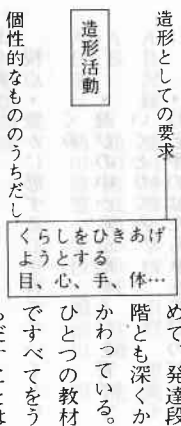 造形としての要求
造形活動
個性的なもののうちだし
くらしをひきあげ
ようとする
目、心、手、体…
めて、発達段
階とも深くか
かわっている。
ひとつの教材
ですべてをう